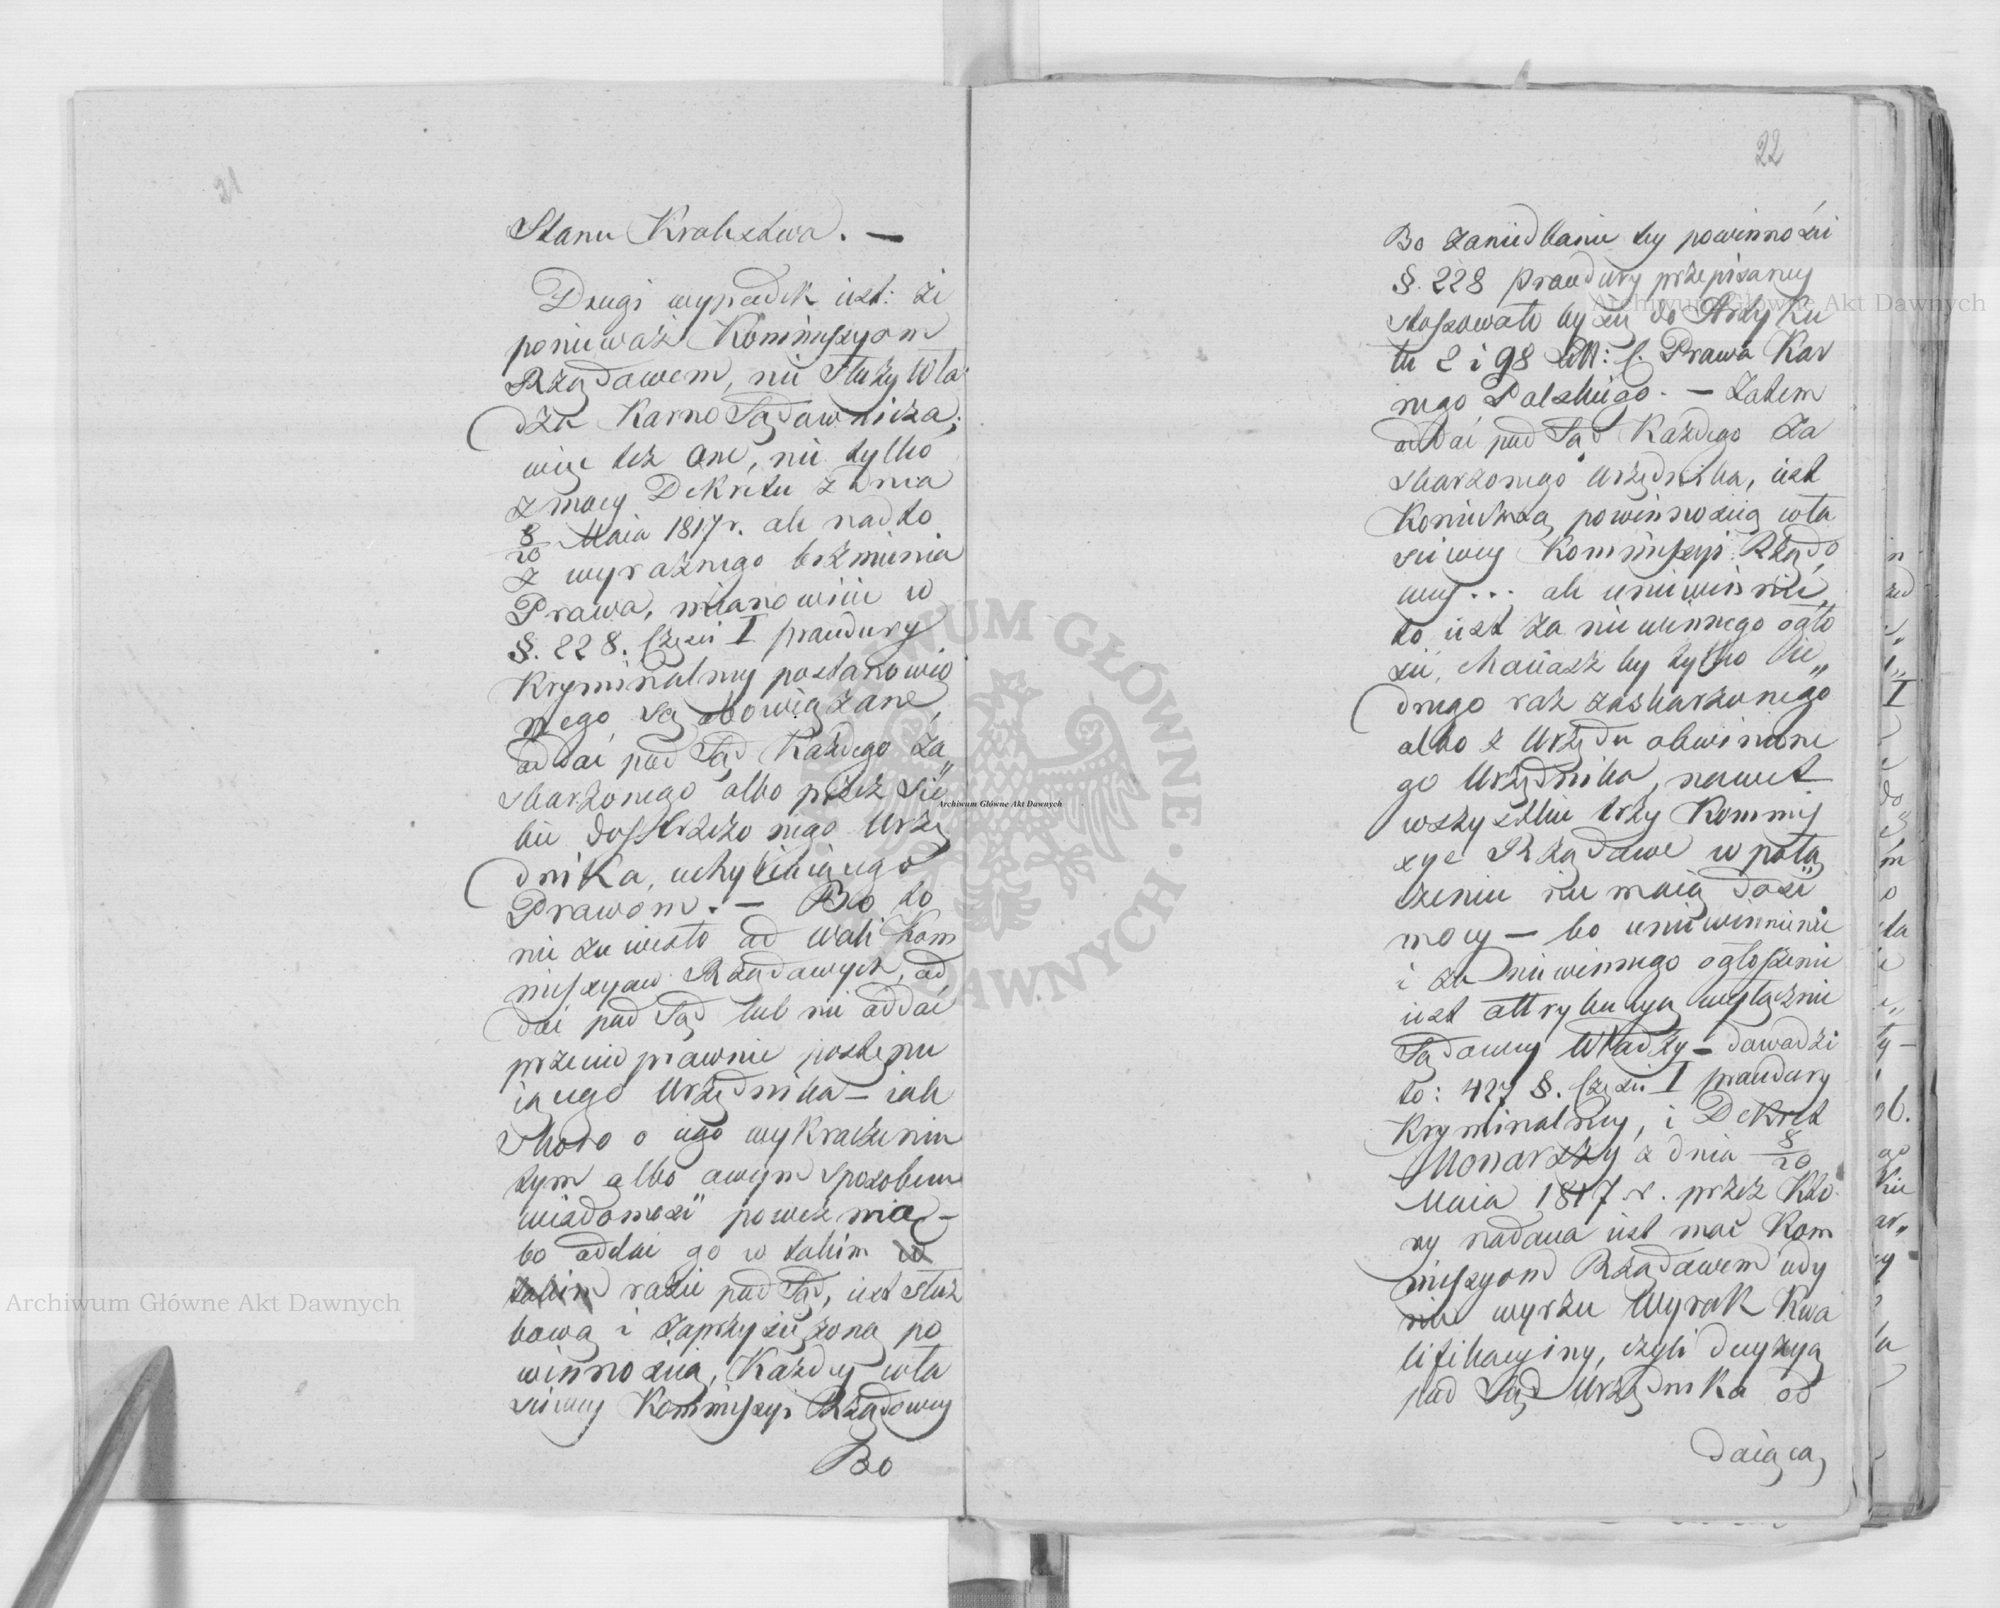 21
Stanu Królestwa. —
Drugi wypadek iest: że
ponieważ Kommissyom
Rządowem, nie służy Wła
dza Karno Sądownicza;
więc też one, nie tylko
z mocy Dekretu z dnia
8/20 Maia 1817 r. ale nadto
z wyraźnego brzmienia
Prawa, mianowicie w
§. 228. Części I procedury
Kryminalney postanowio
nego są obowiązane,
oddać pod Sąd Każdego za„
skarżonego albo przez sie
bie dostrzeżonego Urzę
dnika, uchybiaiącego
Prawom. — Bo to
nie zawisło od woli Kom
missyow Rządowych, od
dać pod Sąd lub nie oddać
przeciw prawnie postępu
iącego Urzędnika — iak
skoro o iego wykroczeniu
tym albo owym sposobem
wiadomość powezmią —
bo oddać go w takim w
takim razie pod Sąd, iest służ
bową i zaprzysiężoną po
winnością, Każdey wła
ściwey Kommissyi Rządowey
Bo
22
Bo zaniedbanie tey powinności
§. 228 procedury przepisaney
stosowało by się do Artyku
łu 2 i 98 Litt: c. Prawa Kar
nego Polskiego. — Zatem
oddać pod Sąd Każdego za
skarżonego Urzędnika, iest
Konieczną powinnością wła
ściwey Kommissyi Rządo
wey... ale uniewinnić,
to iest za niewinnego ogło
sić, chociażby tylko ie„
dnego raz zaskarżonego
albo z Urzędu obwinione
go Urzędnika, nawet
wszystkie trzy Kommis
sye Rządowe w połą
czeniu nie maią dość
mocy — bo uniewinnienie
i za niewinnego ogłoszenie
iest attrybucyą wyłącznie
Sądowey Władzy — dowodzi
to: 427 §. Części I procedury
Kryminalney, i Dekret
Monarszy z dnia 8/20
Maia 1817 r. przez Któ
ry nadana iest moc Kom
missyom Rządowem iedy
nie wyrzec Wyrok Kwa
lifikacyiny, czyli decyzyą
pod Sąd Urzędnika od
daiącą
Archiwum Główne Akt Dawnych
Archiwum Główne Akt Dawnych
Archiwum Główne Akt Dawnych
ARCHIWUM GŁÓWNE AKT DAWNYCH